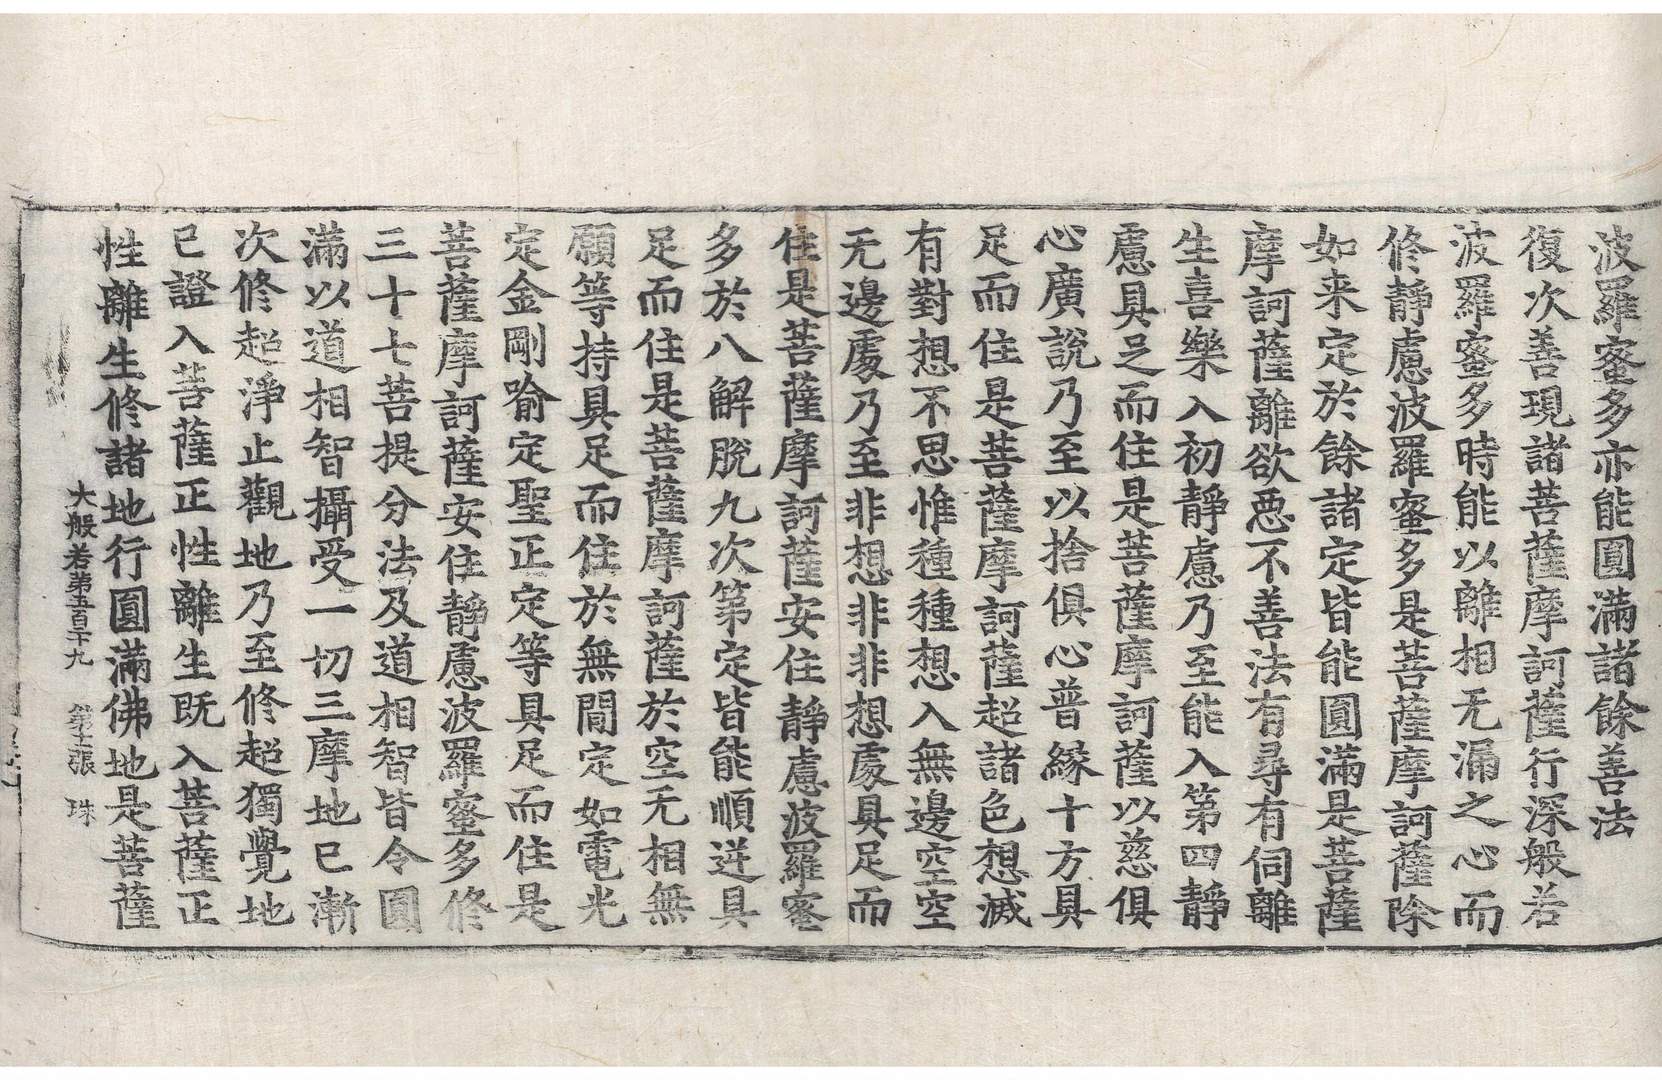 波羅蜜多亦能圓滿諸餘善法
復次善現諸菩薩摩訶薩行深般若
波羅蜜多時能以離相无漏之心而
修靜慮波羅蜜多是菩薩摩訶薩除
如来定於餘諸定皆能圓滿是菩薩
摩訶薩離欲惡不善法有尋有伺離
生喜樂入初靜慮乃至能入第四靜
慮具足而住是菩薩摩訶薩以慈俱
心廣說乃至以捨俱心普縁十方具
足而住是菩薩摩訶薩超諸色想滅
有對想不思惟種種想入無邊空空
无邊處乃至非想非非想處具足而
住是菩薩摩訶薩安住靜慮波羅蜜
多於八解脫九次第定皆能順逆具
足而住是菩薩摩訶薩於空无相無
願等持具足而住於無閒定如電光
定金剛喻定聖正定等具足而住是
菩薩摩訶薩安住靜慮波羅蜜多修
三十七菩提分法及道相智皆令圓
滿以道相智攝受一切三摩地已漸
次修超淨止觀地乃至修超獨覺地
已證入菩薩正性離生既入菩薩正
性離生修諸地行圓滿佛地是菩薩
大般若第五百二十九 第十張 珠